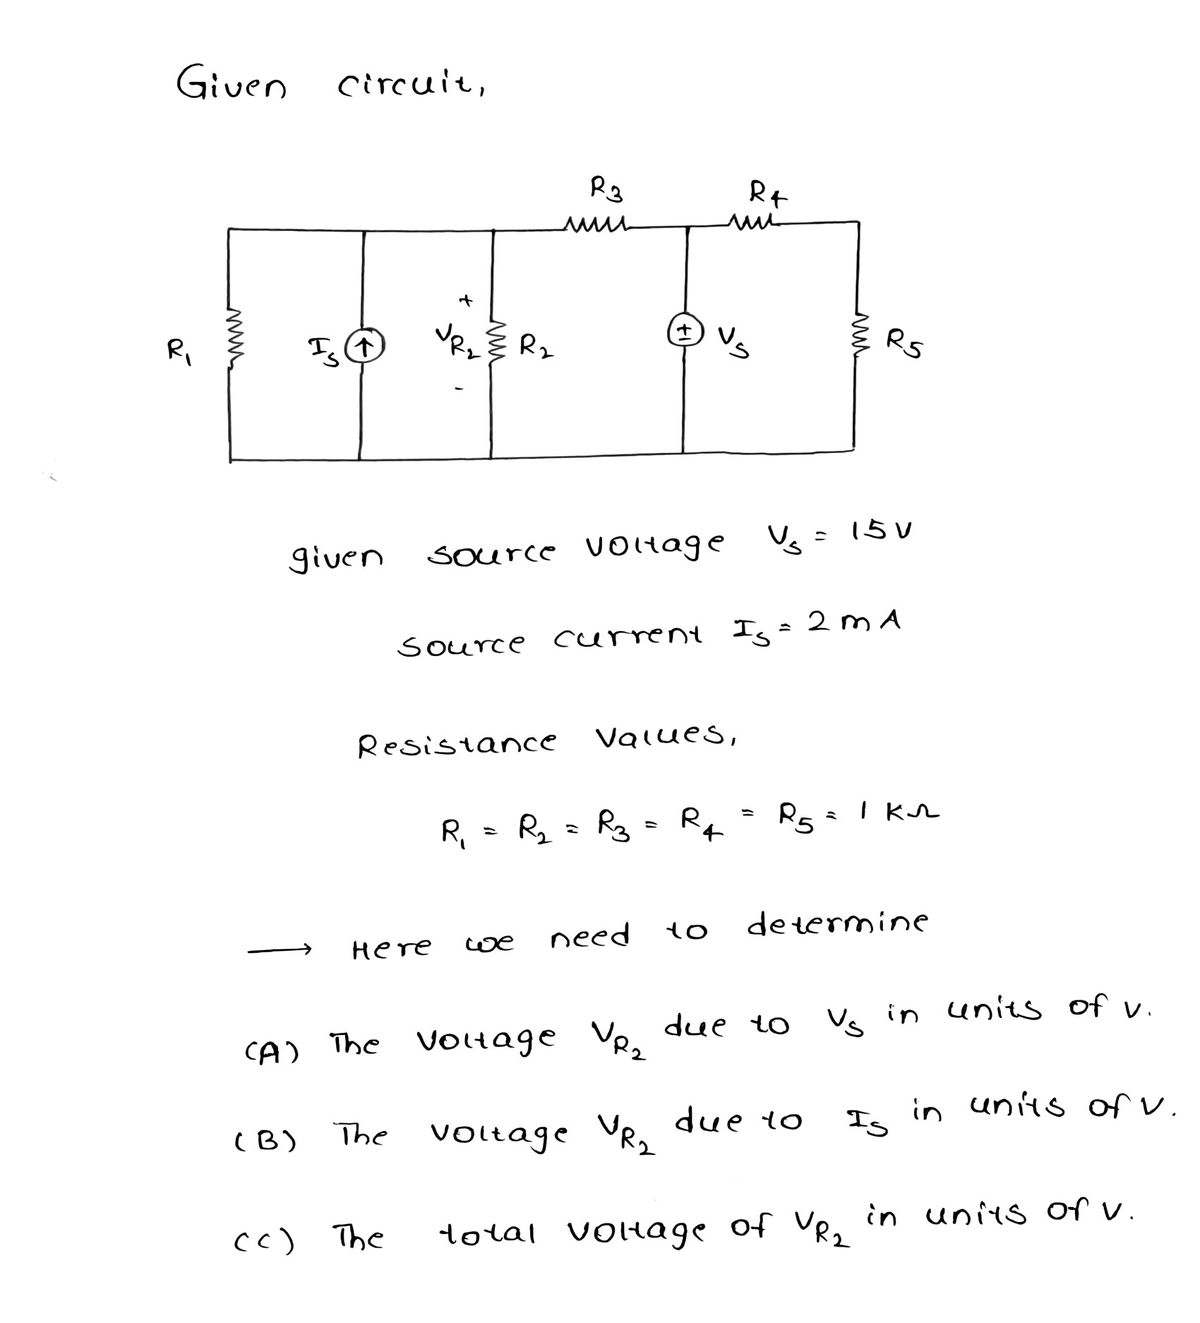 Given circuit,
R3 R4
+
R1 Is VR2 R2 + Vs R5
-
given source voltage Vs = 15V
source current Is = 2 mA
Resistance Values,
R1 = R2 = R3 = R4 = R5 = 1 KΩ
→ Here we need to determine
(A) The Voltage VR2 due to Vs in units of V.
(B) The Voltage VR2 due to Is in units of V.
(C) The total Voltage of VR2 in units of V.